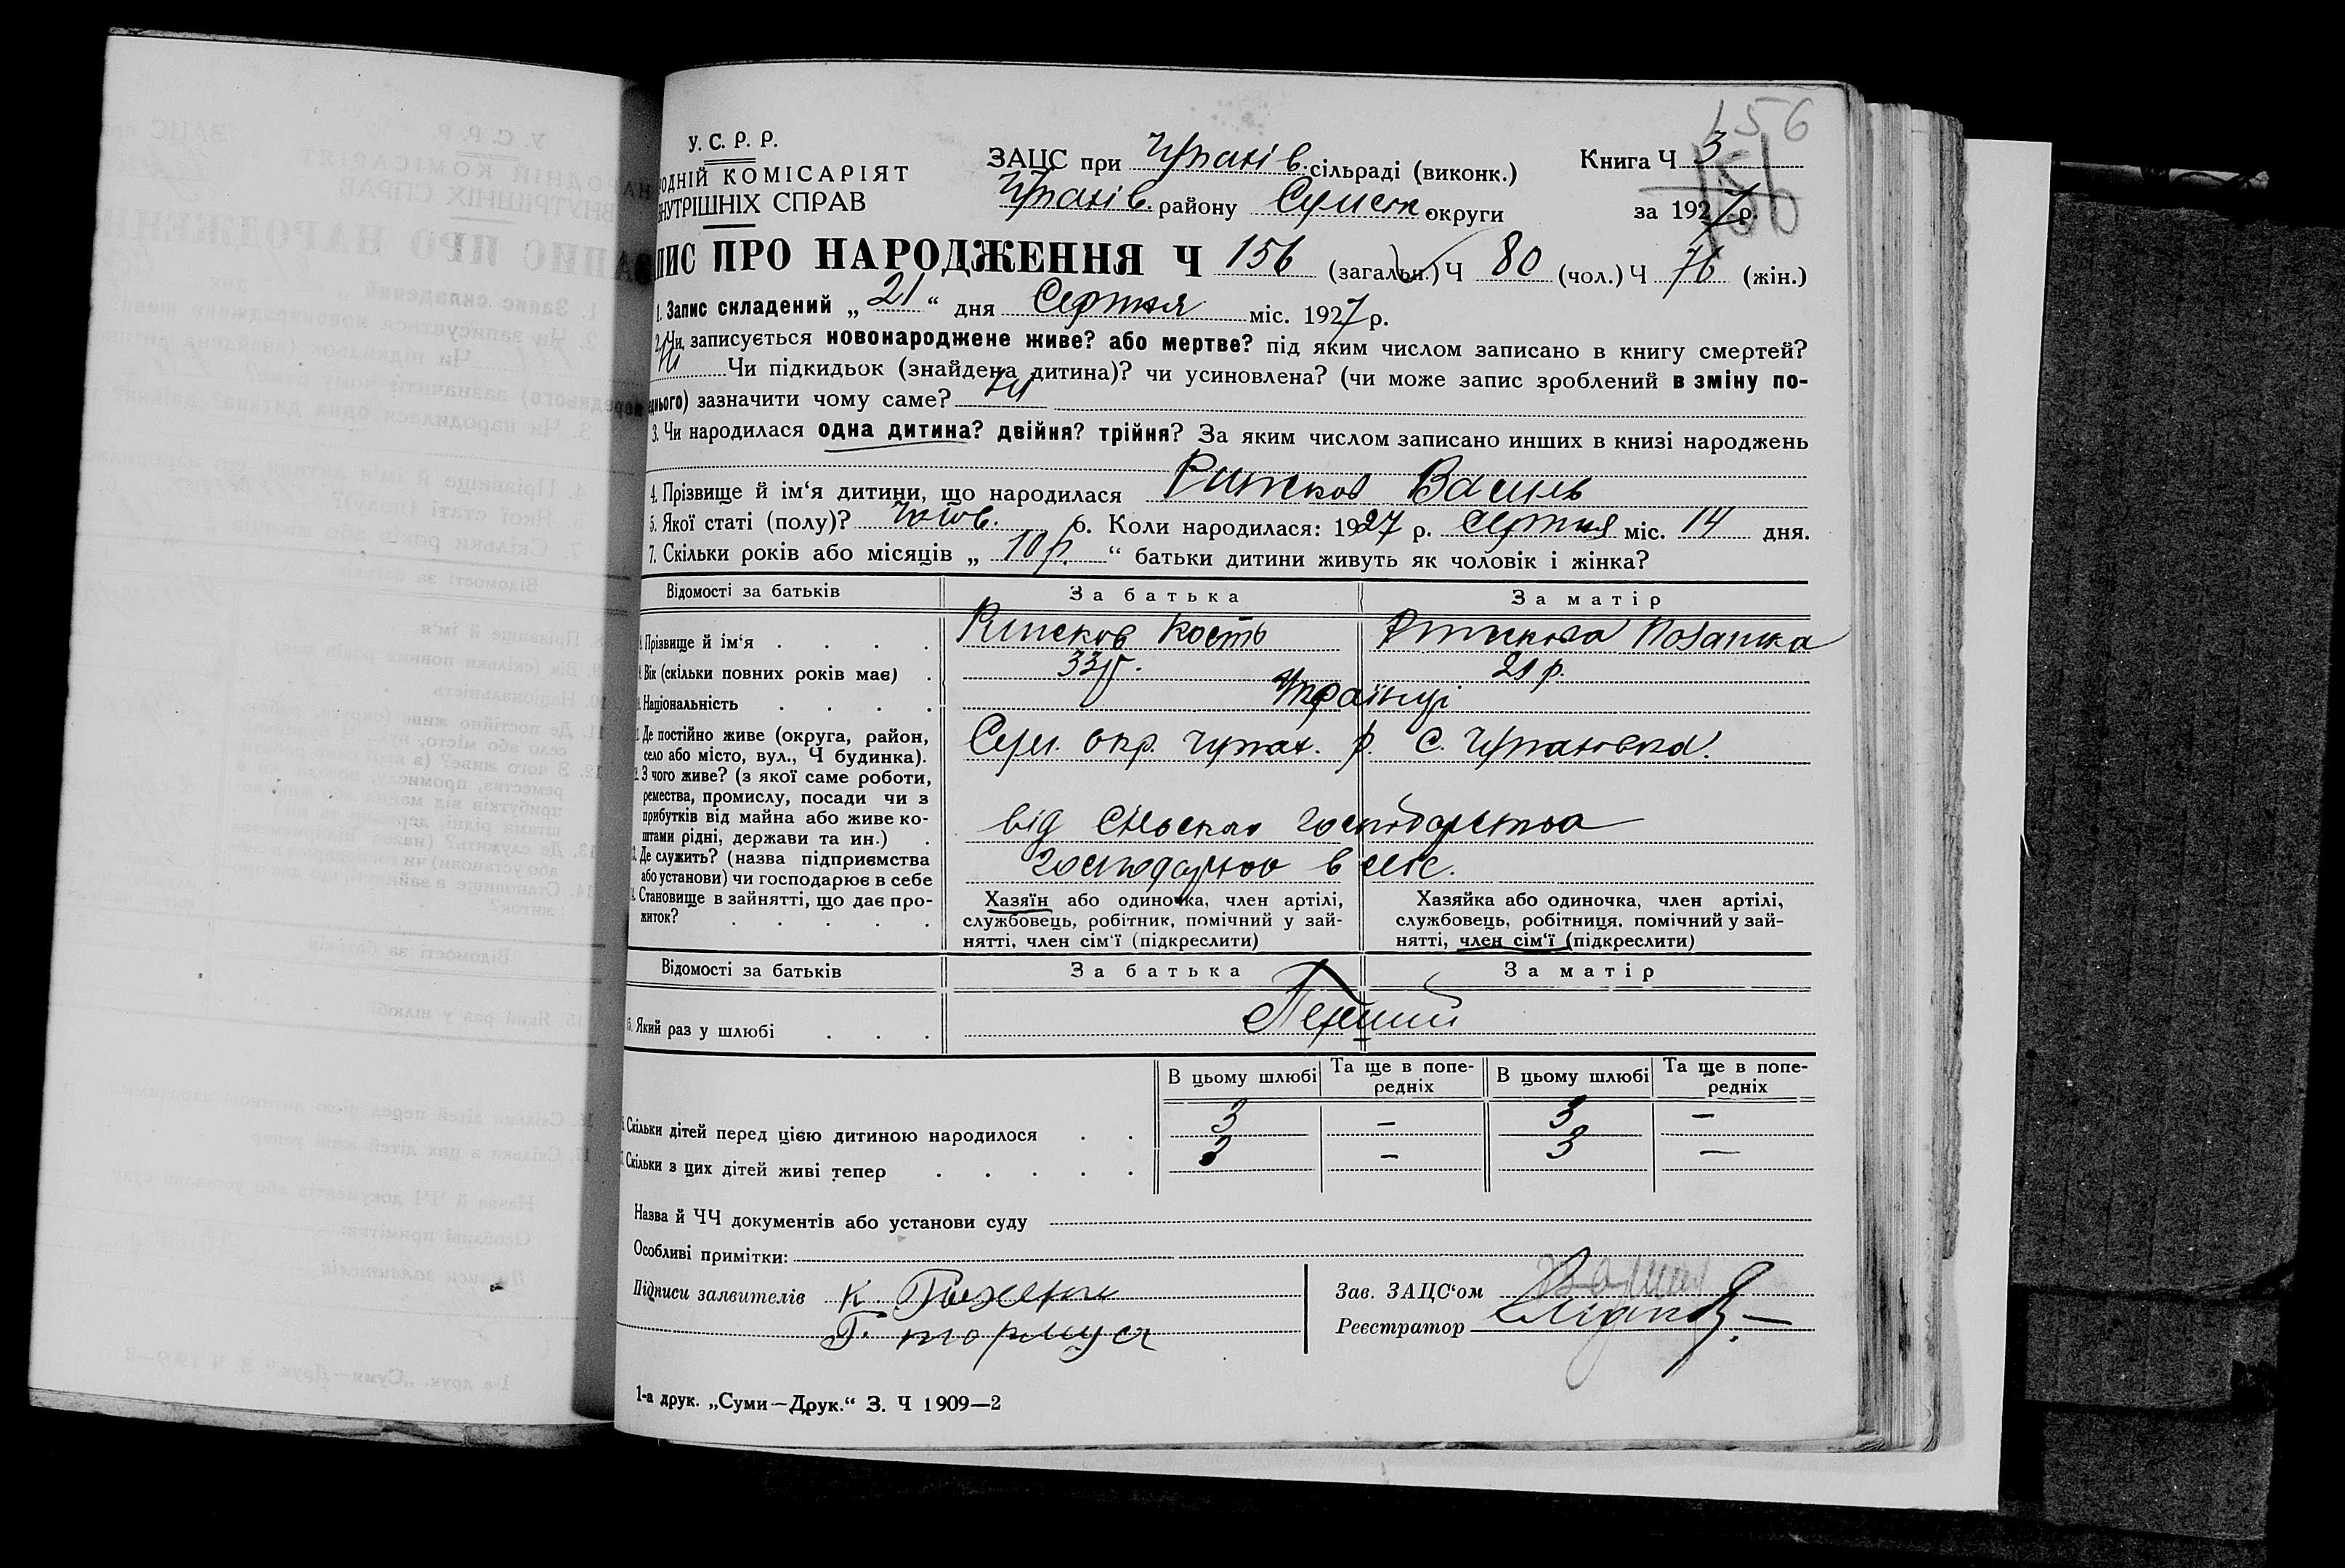 156
У. С. Р. Р.
ОДНІЙ КОМІСАРІЯТ
ВНУТРІШНІХ СПРАВ
ЗАЦС при Чупахів. сільраді (виконк.)
Чупахів. району Сумськ. округи
Книга Ч 3
156
за 1927 р.
ПИС ПРО НАРОДЖЕННЯ Ч 156 (загальн.) Ч 80 (чол.) Ч 76 (жін.)
1. Запис складений „ 21 “ дня Серпня міс. 1927 р.
2. Чи записується новонароджене живе? або мертве? під яким числом записано в книгу смертей?
Ні Чи підкидьок (знайдена дитина)? чи усиновлена? (чи може запис зроблений в зміну по-
днього) зазначити чому саме? Ні
3. Чи народилася одна дитина? двійня? трійня? За яким числом записано инших в книзі народжень
4. Прізвище й ім‘я дитини, що народилася Рижков Василь
5. Якої статі (полу)? чолов. 6. Коли народилася: 1927 р. серпня міс. 14 дня.
7. Скільки років або місяців „ 10 р. “ батьки дитини живуть як чоловік і жінка?
Відомості за батьків За батька За матір
Прізвище й ім‘я Рижков Кость Рижкова
Вік (скільки повних років має) 33 р. 29 р.
Національність Українці
Де постійно живе (округа, район,
село або місто, вул., Ч будинка).
Сум. окр. Чупах. р. С. Чупахівка.
З чого живе? (з якої саме роботи,
ремества, промислу, посади чи з
прибутків від майна або живе ко-
штами рідні, держави та ин.)
від сільсько господарства
Де служить? (назва підприємства
або установи) чи господарює в себе
господарює в себе.
14. Становище в зайнятті, що дає про-
житок?
Хазяїн або одиночка, член артілі,
службовець, робітник, помічний у зай-
нятті, член сім‘ї (підкреслити)
Хазяйка або одиночка, член артілі,
службовець, робітниця, помічний у зай-
нятті, член сім‘ї (підкреслити)
Відомості за батьків За батька За матір
15. Який раз у шлюбі Перший
В цьому шлюбі Та ще в попе-
редніх В цьому шлюбі Та ще в попе-
редніх
Скільки дітей перед цією дитиною народилося 3 – 3 –
Скільки з цих дітей живі тепер 3 – 3 –
Назва й ЧЧ документів або установи суду
Особливі примітки:
Підписи заявителів К.
Г.
Зав. ЗАЦС‘ом
Реєстратор
1-а друк. „Суми—Друк.“ З. Ч 1909—2